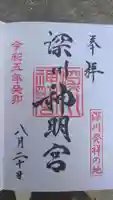 奉拝
深川発祥の地
深川神明宮
八月二十日
令和五年癸卯